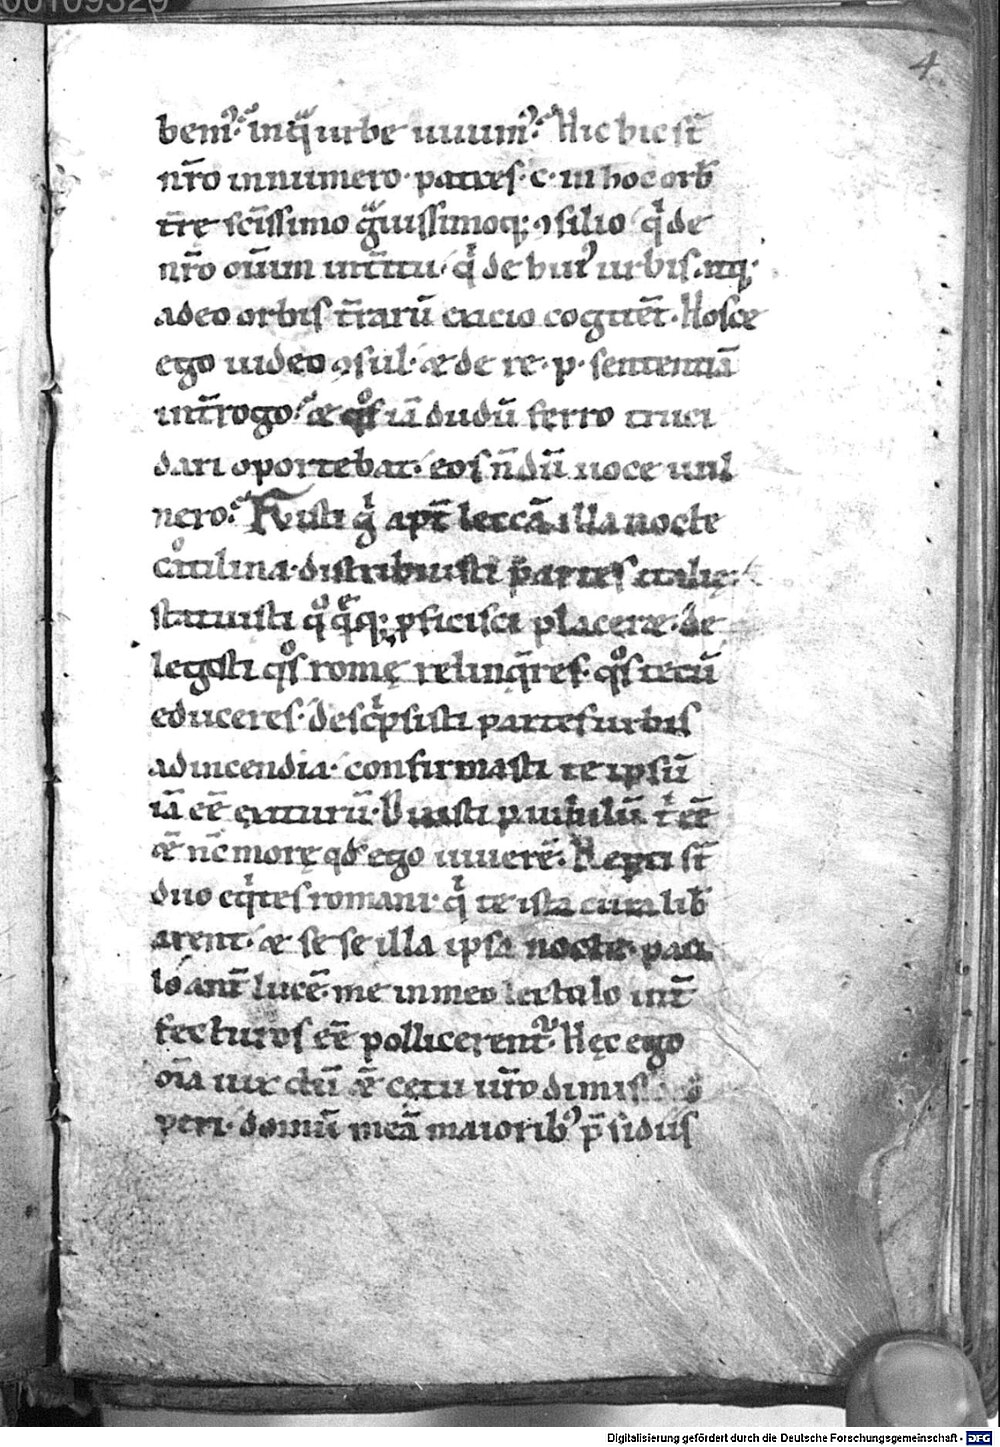 00109329
4
bem᷒. in qͣ urbe uiuim᷒. Hic hic st̄
nr̄o innumero. patres. c. in hoc orb̄
tr̄ę sc̄issimo gͣuissimoq; ꝯsilio qͥ de
nr̄o om̄ium int̄itu. qͥ de hui᷒ urbis. atq;
adeo orbis tr̄arū exicio cogitēt. Hosce
ego uideo ꝯsul. & de re. p. sententiā
int̄rogo. & qͦs iā dudū ferro truci
dari oportebat. eos n̄dū uoce uul
nero. Fuisti gͥ apt̄ leccā illa nocte
catilina. distribuisti partes italię.
statuisti qͦ quēq; ꝓficisci placeret. de
legisti qͦs romę relinq̄res. qͦs tecū
educeres. descͥpsisti partes urbis
ad incendia. confirmasti te ipsū
iā eē exiturū. Dixisti paululū tͥ eē
&̄ nc̄ morę qd̄ ego uiuerē. Repti st̄
duo eqͥtes romani. qͥ te ista cura lib̄
arent. & se se illa ipsa nocte. pau
lo ant̄ lucē. me in meo lectulo int̄
fecturos eē pollicerent᷑. Hęc ego
om̄ia uix dū &̄ cętu ur̄o dimisso cō
peri. domū meā maiorib᷒ p̄sidiis
Digitalisierung gefördert durch die Deutsche Forschungsgemeinschaft - DFG